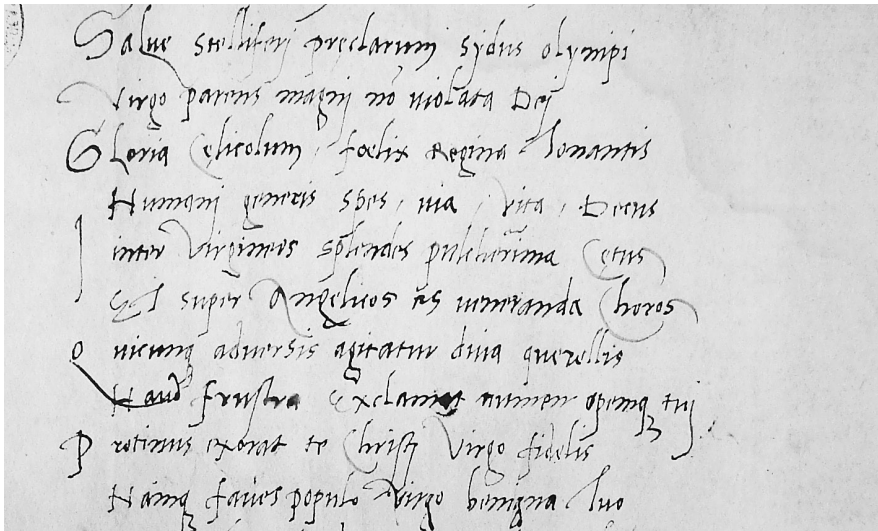 Salue stelliferj pręclarum sydus olympi
Virgo parens magnj nō uiolata Dej
Gloria Cęlicolum, foelix Regina tonantis
Humanj generis spes, uia, vita, Decus
Inter Virgineos splendes pulcherrima Cętus
Et super Angelicos es ueneranda Choros
Quicunq aduersis agitatur diua querellis
Haud frustra Exclamat numen opemq tuj
Protinus exorat te Christj Virgo fidelis
Nāmq faues populo Virgo benigna tuo